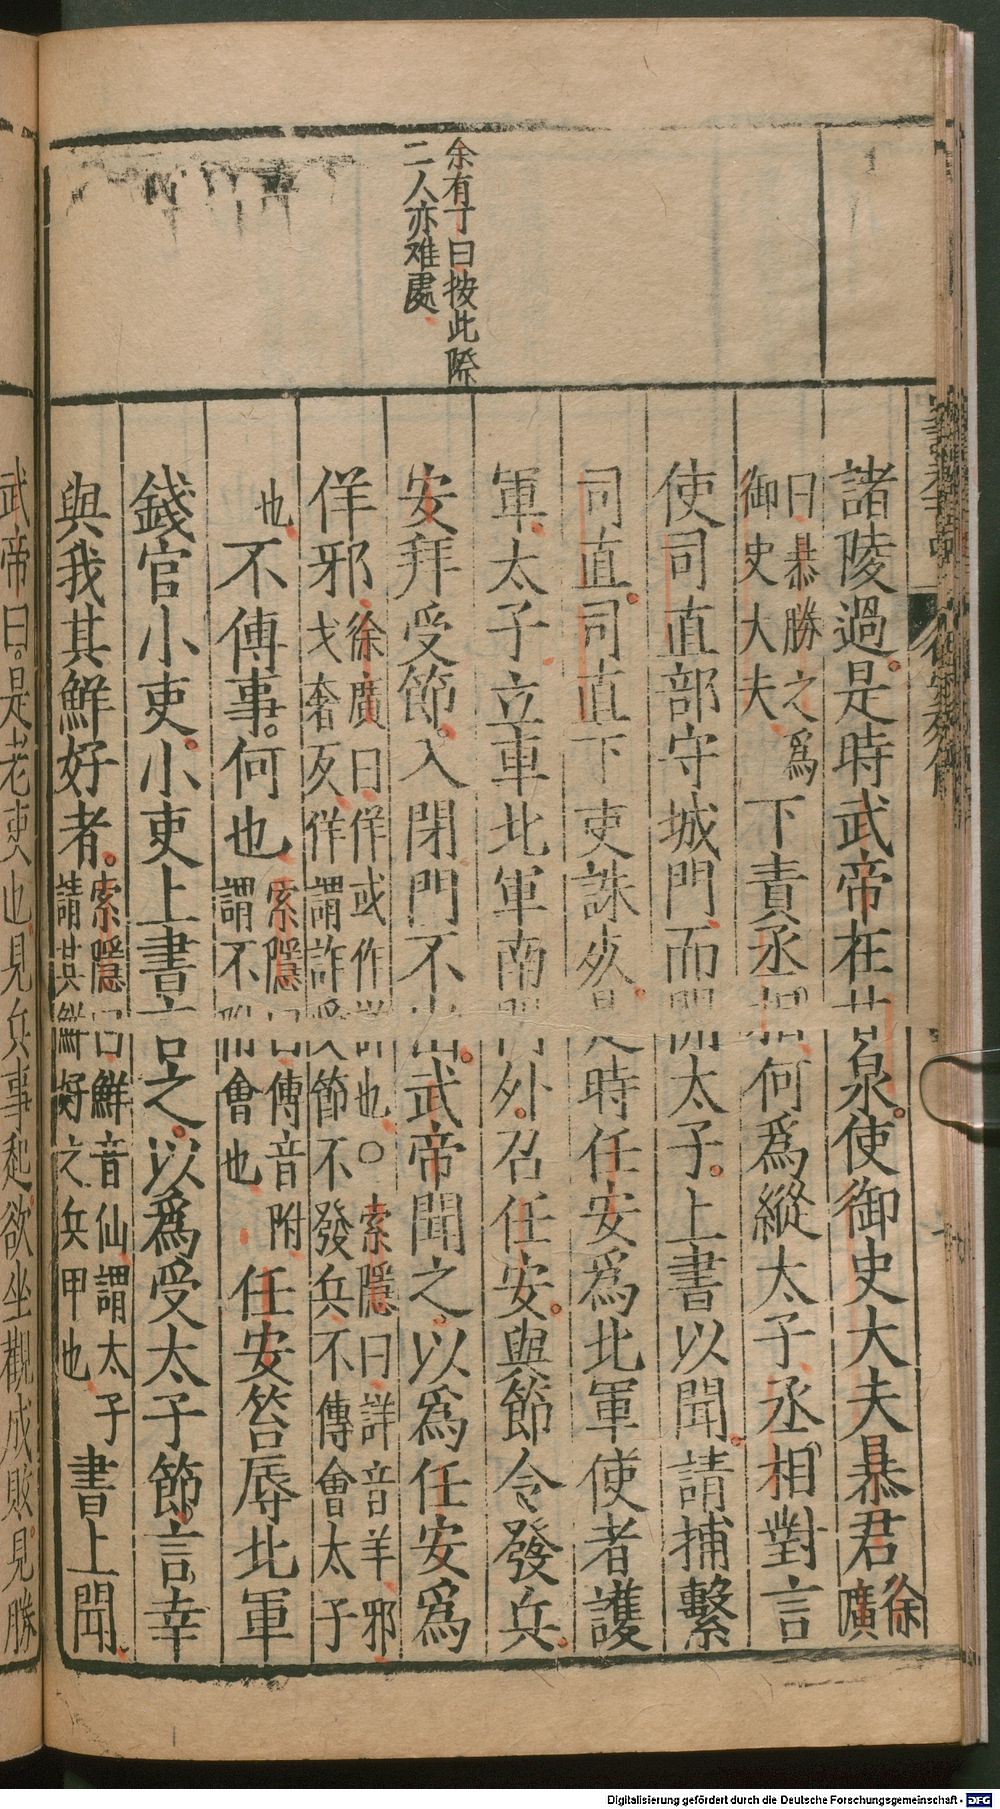 余有丁曰按此際
二人亦难處
諸陵過是時武帝在甘泉使御史大夫暴君徐廣
曰暴勝之爲御史大夫下責丞相何爲縱太子丞相對言
使司直部守城門而開太子上書以聞請捕繫
司直司直下吏誅死是時任安爲北軍使者護
軍太子立車北軍南門外召任安與節令發兵
安拜受節入閉門不出武帝聞之以爲任安爲
佯邪徐廣曰佯或作詳也○索隱曰詳音羊邪弋奢反佯謂詐受節不發兵不傳會太子
也不傳事何也索隱曰傳音附謂不附會也任安笞辱北軍
錢官小吏小吏上書言之以爲受太子節言幸
與我其鮮好者索隱曰鮮音仙謂太子請其鮮好之兵甲也書上聞
武帝曰是老吏也見兵事起欲坐觀成敗見勝
Digitalisierung gefördert durch die Deutsche Forschungsgemeinschaft - DFG